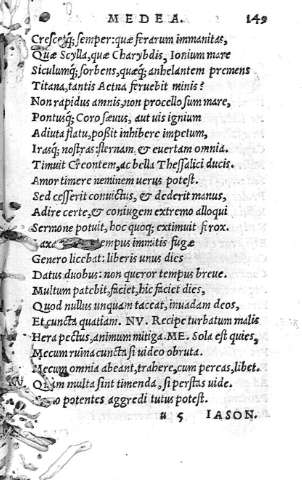 MEDEA. 149
Crescetq́; semper: quæ ferarum immanitas,
Quæ Scylla, quæ Charybdis, Ionium mare
Siculumq́; sorbens, quæq́; anhelantem premens
Titana, tantis Aetna feruebit minis?
Non rapidus amnis, non procellosum mare,
Pontusq́; Coro sæuus, aut uis ignium
Adiuta flatu, poßit inhibere impetum,
Irasq́; nostras: sternam, & euertam omnia.
Timuit Creontem, ac bella Thessalici ducis.
Amor timere neminem uerus potest.
Sed cesserit conuictus, & dederit manus,
Adire certe, & coniugem extremo alloqui
Sermone potuit, hoc quoq; extimuit ferox.
tempus immitis fugæ
Genero licebat: liberis unus dies
Datus duobus: non queror tempus breue.
Multum patebit, faciet, hic faciet dies,
Quod nullus unquam taceat, inuadam deos,
Et cuncta quatiam. NV. Recipe turbatum malis
Hera pectus, animum mitiga. ME. Sola est quies,
Mecum ruina cuncta si uideo obruta.
Mecum omnia abeant, trahere, cum pereas, libet.
Quàm multa sint timenda, si perstas uide.
potentes aggredi tutus potest.
u 5 IASON.